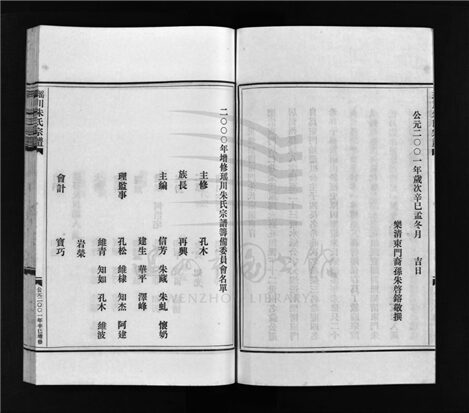 公元二〇〇一年歲次辛巳孟冬月 吉日
樂清東門裔孫朱啓鎔敬撰
二〇〇〇年增修瑶川朱氏宗譜籌備委員會名單
主修 孔木
族長 再興
主編 信芳 朱藏 朱虬 懷奶
建生 華平 澤峰
理監事 孔松 維棣 知杰 阿建
維青 知如 孔木 維波
岩榮
會計 寶巧
瑶川朱氏宗譜
公元二〇〇一年辛巳增修
WENZHOU LIBRARY